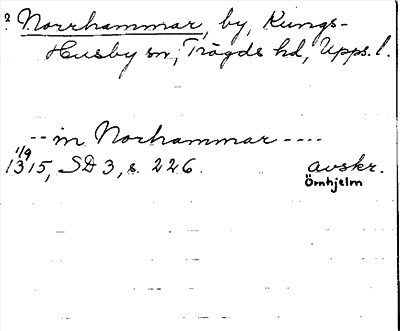 ? Norrhammar, by, Kungs-
Husby sn, Trögds hd, Upps. l.
-- in Norhammar ----
1/9
1315, SD 3, s. 226. avskr.
Örnhjelm